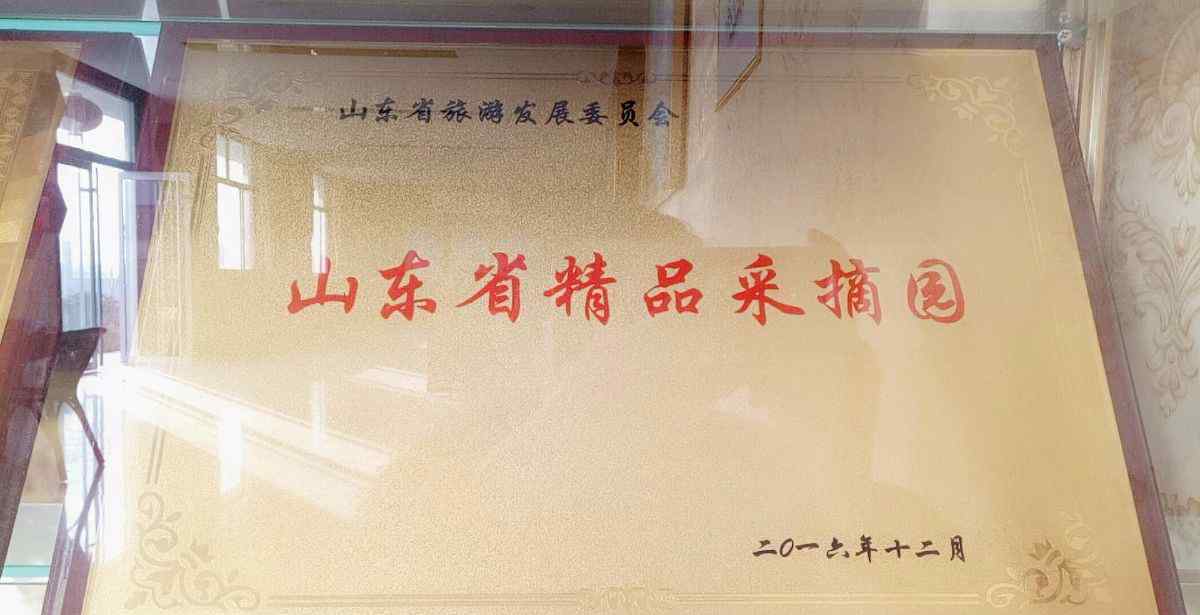 山东省旅游发展委员会
山东省精品采摘园
二〇一六年十二月